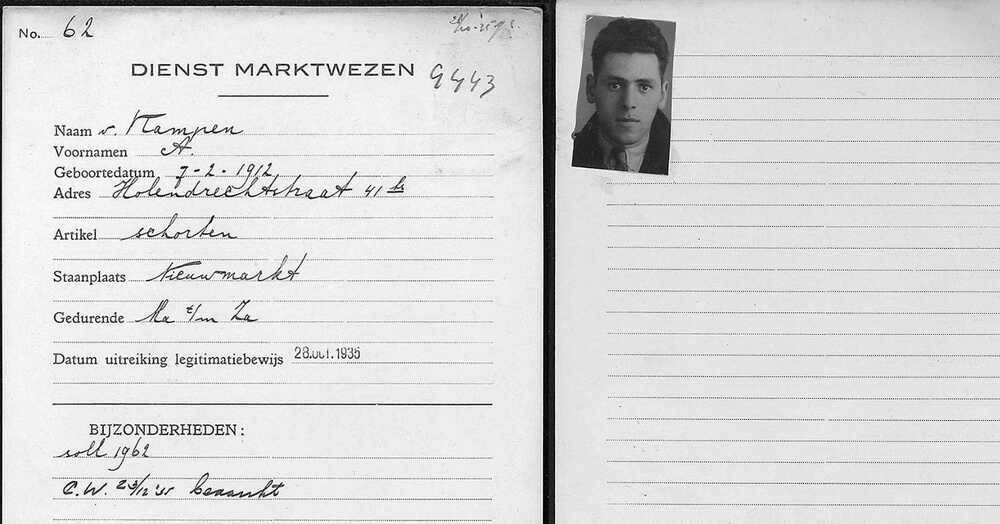 No. 62
DIENST MARKTWEZEN
9443
Naam v. Kampen
Voornamen A.
Geboortedatum 7-2-1912
Adres Holendrechtstraat 41 hs
Artikel schorten
Staanplaats Nieuwmarkt
Gedurende Ma t/m Za
Datum uitreiking legitimatiebewijs 28.OCT.1935
BIJZONDERHEDEN:
soll 1962
C.W.